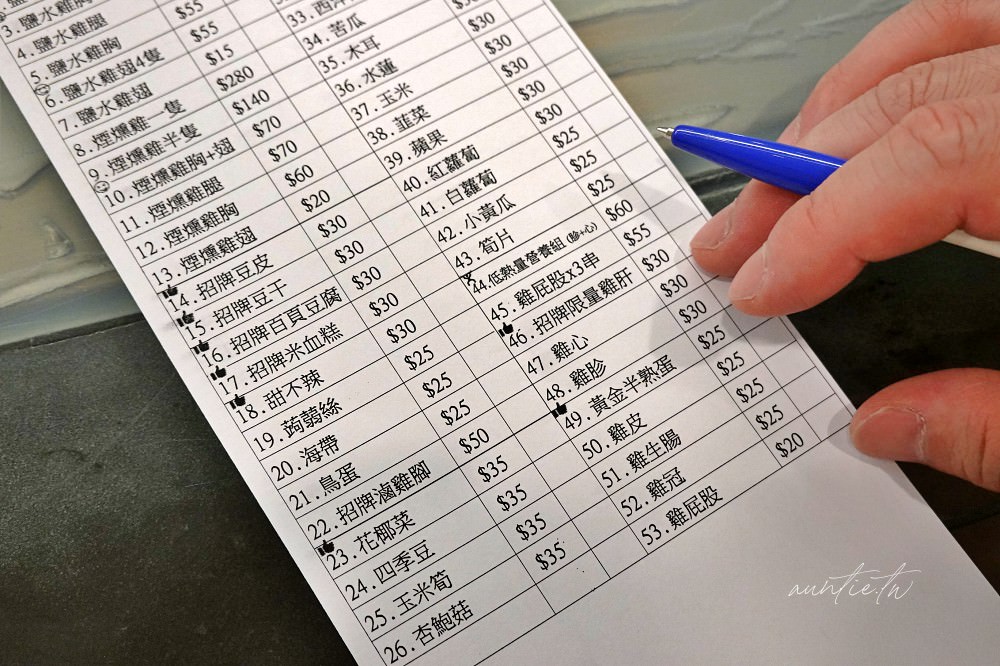 3.鹽水雞胸
4.鹽水雞腿
5.鹽水雞胸 $55
6.鹽水雞翅4隻 $55
7.鹽水雞翅 $15
8.煙燻雞一隻 $280
9.煙燻雞半隻 $140
10.煙燻雞胸+翅 $70
11.煙燻雞腿 $70
12.煙燻雞胸 $60
13.煙燻雞翅 $20
14.招牌豆皮 $30
15.招牌豆干 $30
16.招牌百頁豆腐 $30
17.招牌米血糕 $30
18.甜不辣 $30
19.蒟蒻絲 $25
20.海帶 $25
21.鳥蛋 $25
22.招牌滷雞腳 $50
23.花椰菜 $35
24.四季豆 $35
25.玉米筍 $35
26.杏鮑菇 $35
34.苦瓜
35.木耳
36.水蓮 $30
37.玉米 $30
38.韭菜 $30
39.蘋果 $30
40.紅蘿蔔 $30
41.白蘿蔔 $25
42.小黃瓜 $25
43.筍片 $25
44.低熱量營養組(胗+心) $60
45.雞屁股x3串 $55
46.招牌限量雞肝 $30
47.雞心 $30
48.雞胗 $30
49.黃金半熟蛋 $25
50.雞皮 $25
51.雞生腸 $25
52.雞冠 $25
53.雞屁股 $20
auntie.tw